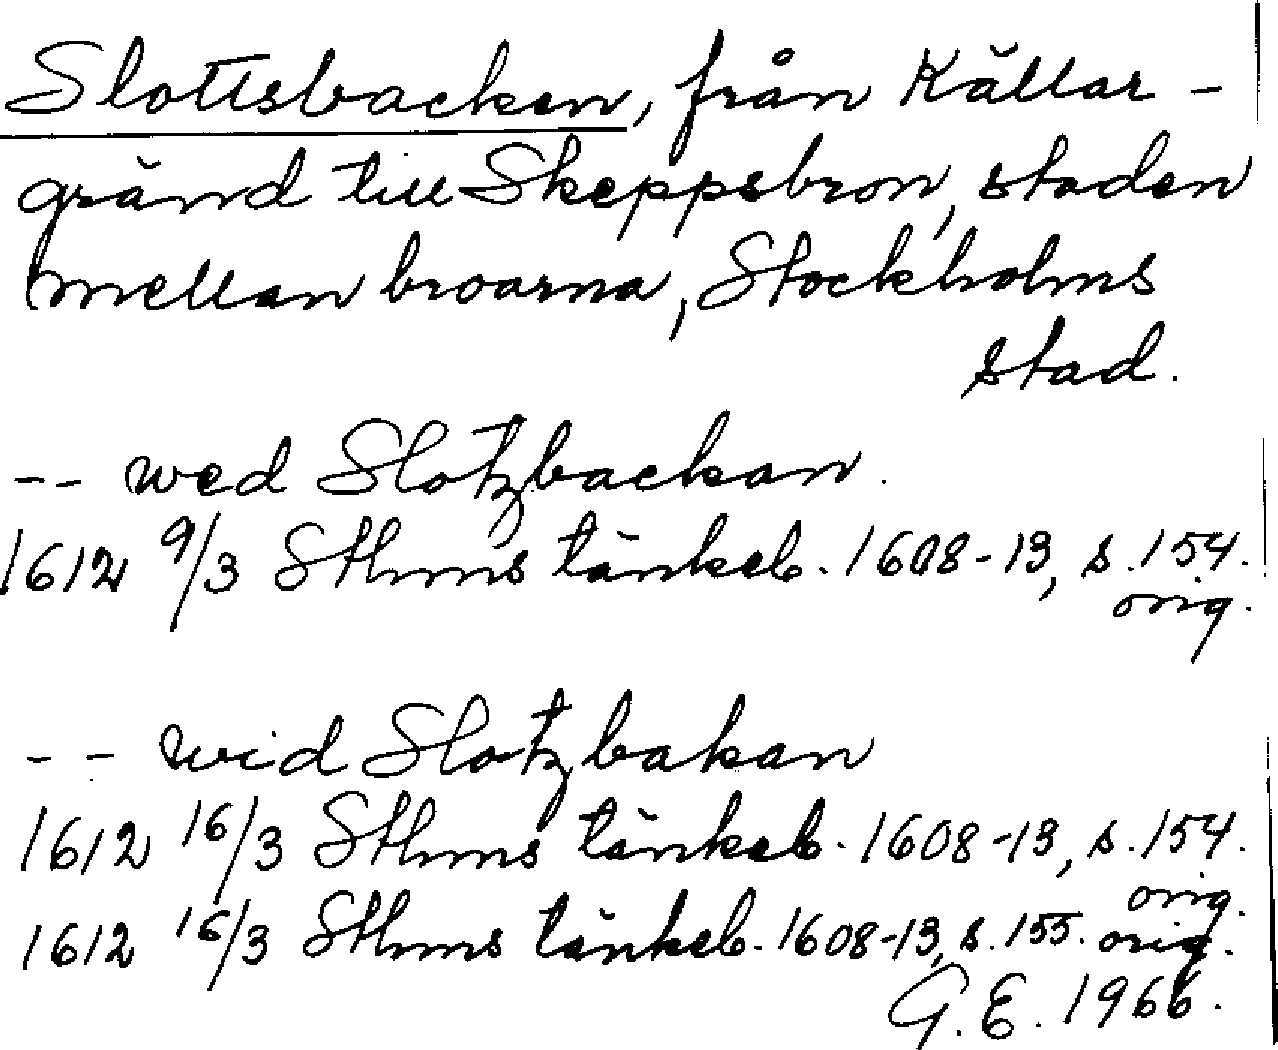 Slottsbacken, från Källar-
gränd till Skeppsbron, staden
mellan broarna, Stockholms
stad.
-- wed Slotzbackan.
1612 9/3 Sthms tänkeb. 1608-13, s. 154.
orig.
-- wid Slotzbakan
1612 16/3 Sthms tänkeb. 1608-13, s. 154.
orig.
1612 16/3 Sthms tänkeb. 1608-13, s. 155. orig.
G.E. 1966.